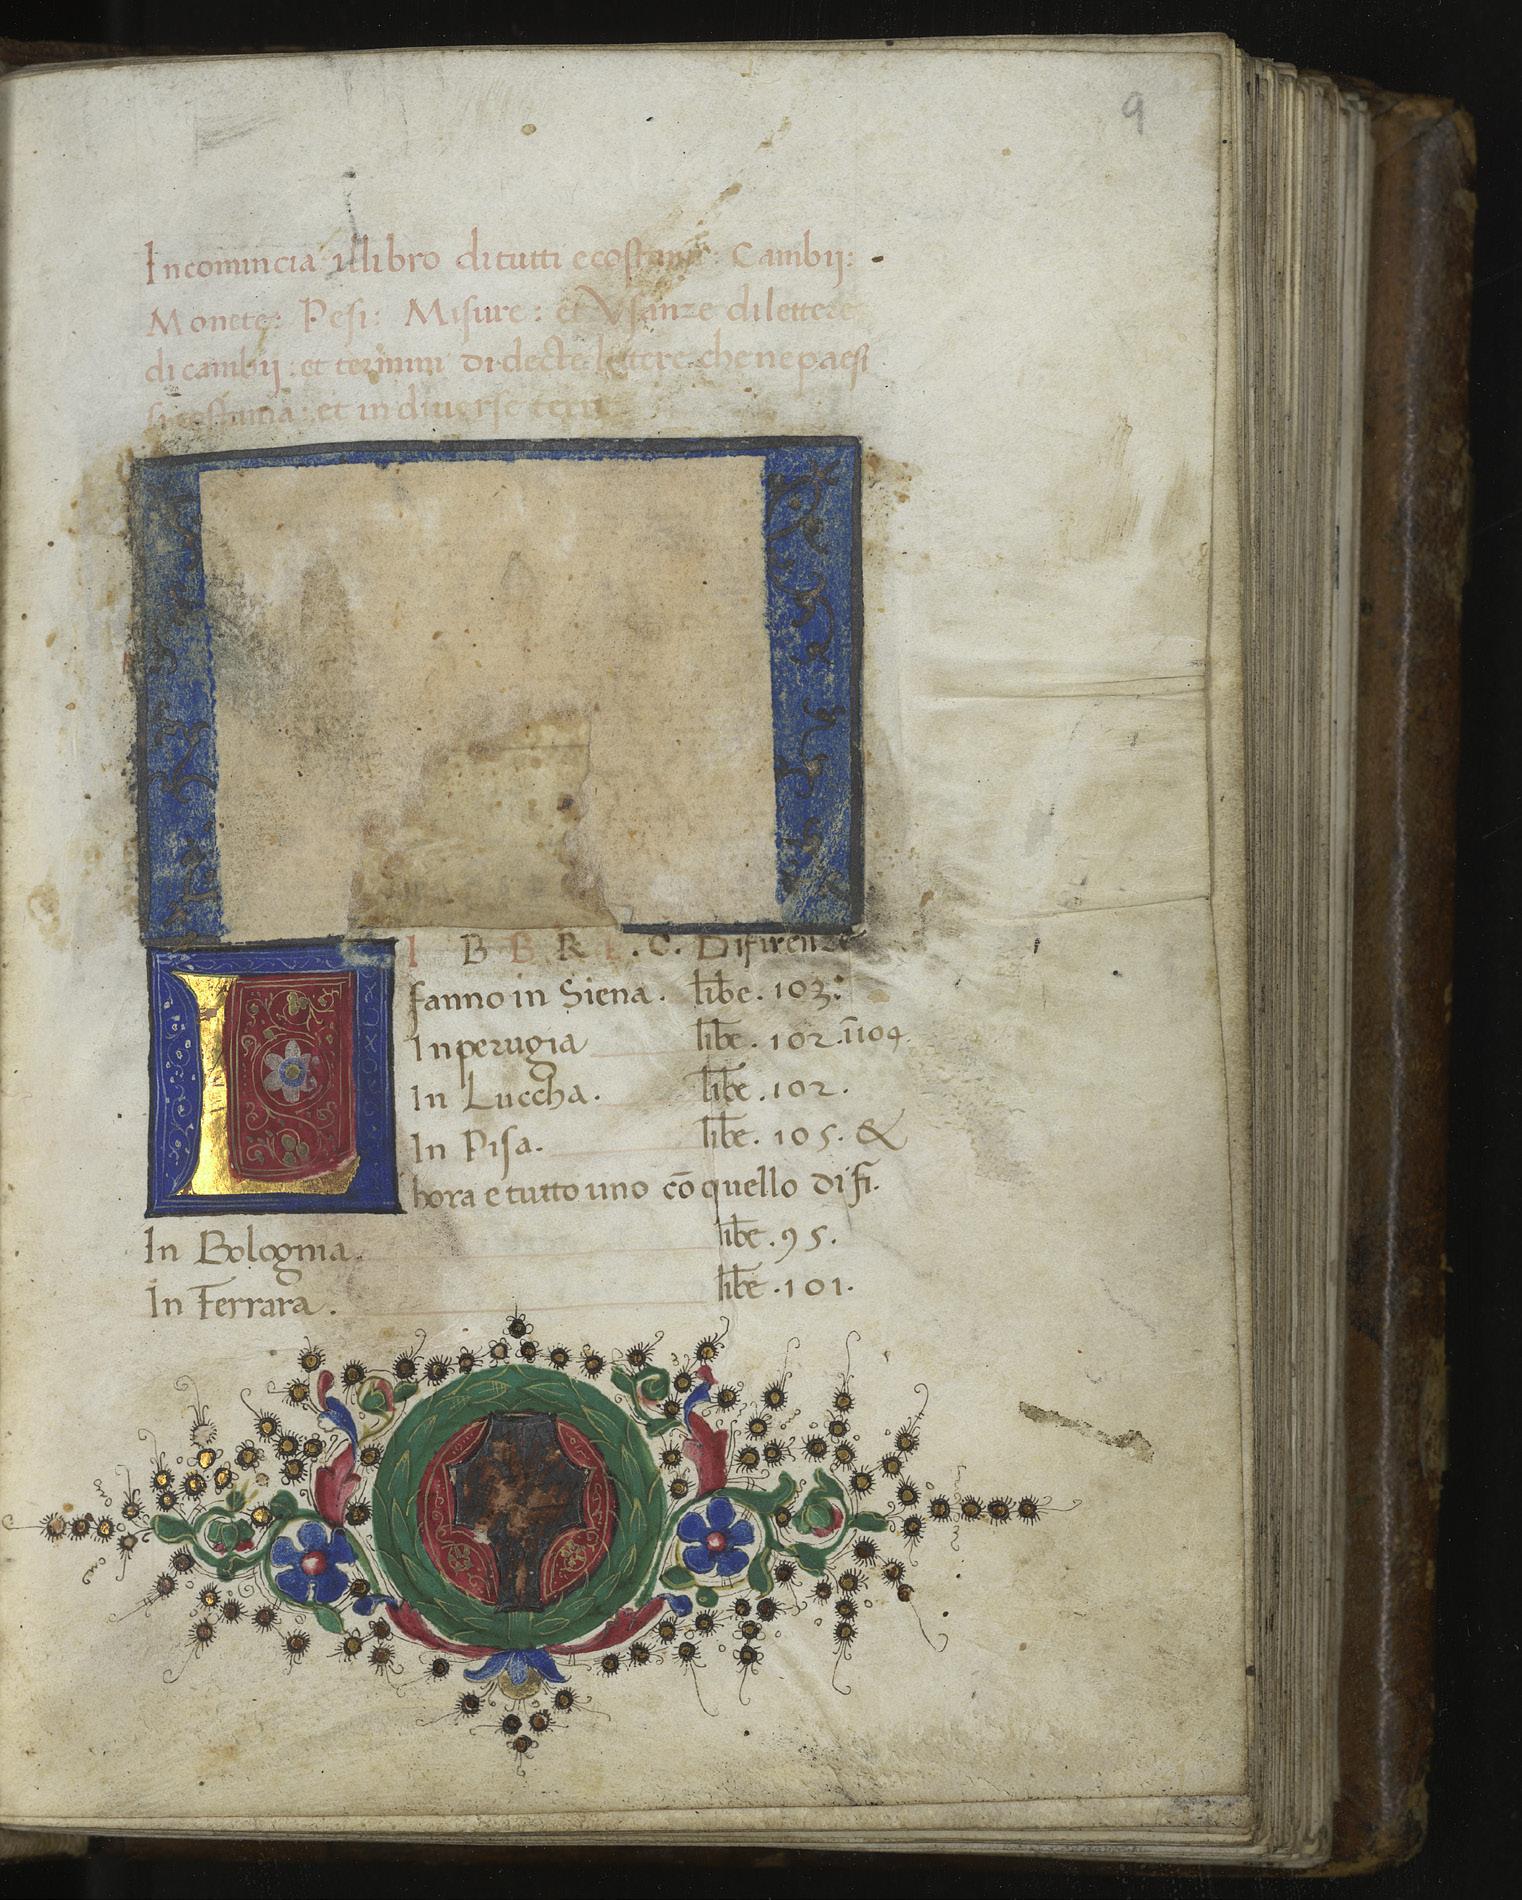 9
Incomincia illibro ditutti ecostumi: Cambij:
Monete: Pesi: Misure: et Vsanze dilettere
di cambij: et termini di decte lettere che nepaesi
si costuma: et in diuerse terre
L I B B R E . C. Difirenze
fanno in Siena. libe. 103:
In perugia libe. 102.
In Luccha. libe. 102.
In Pisa. libe. 105. &
hora e tutto uno cō quello di fi.
In Bologna. libe. 95.
In Ferrara. libe. 101.